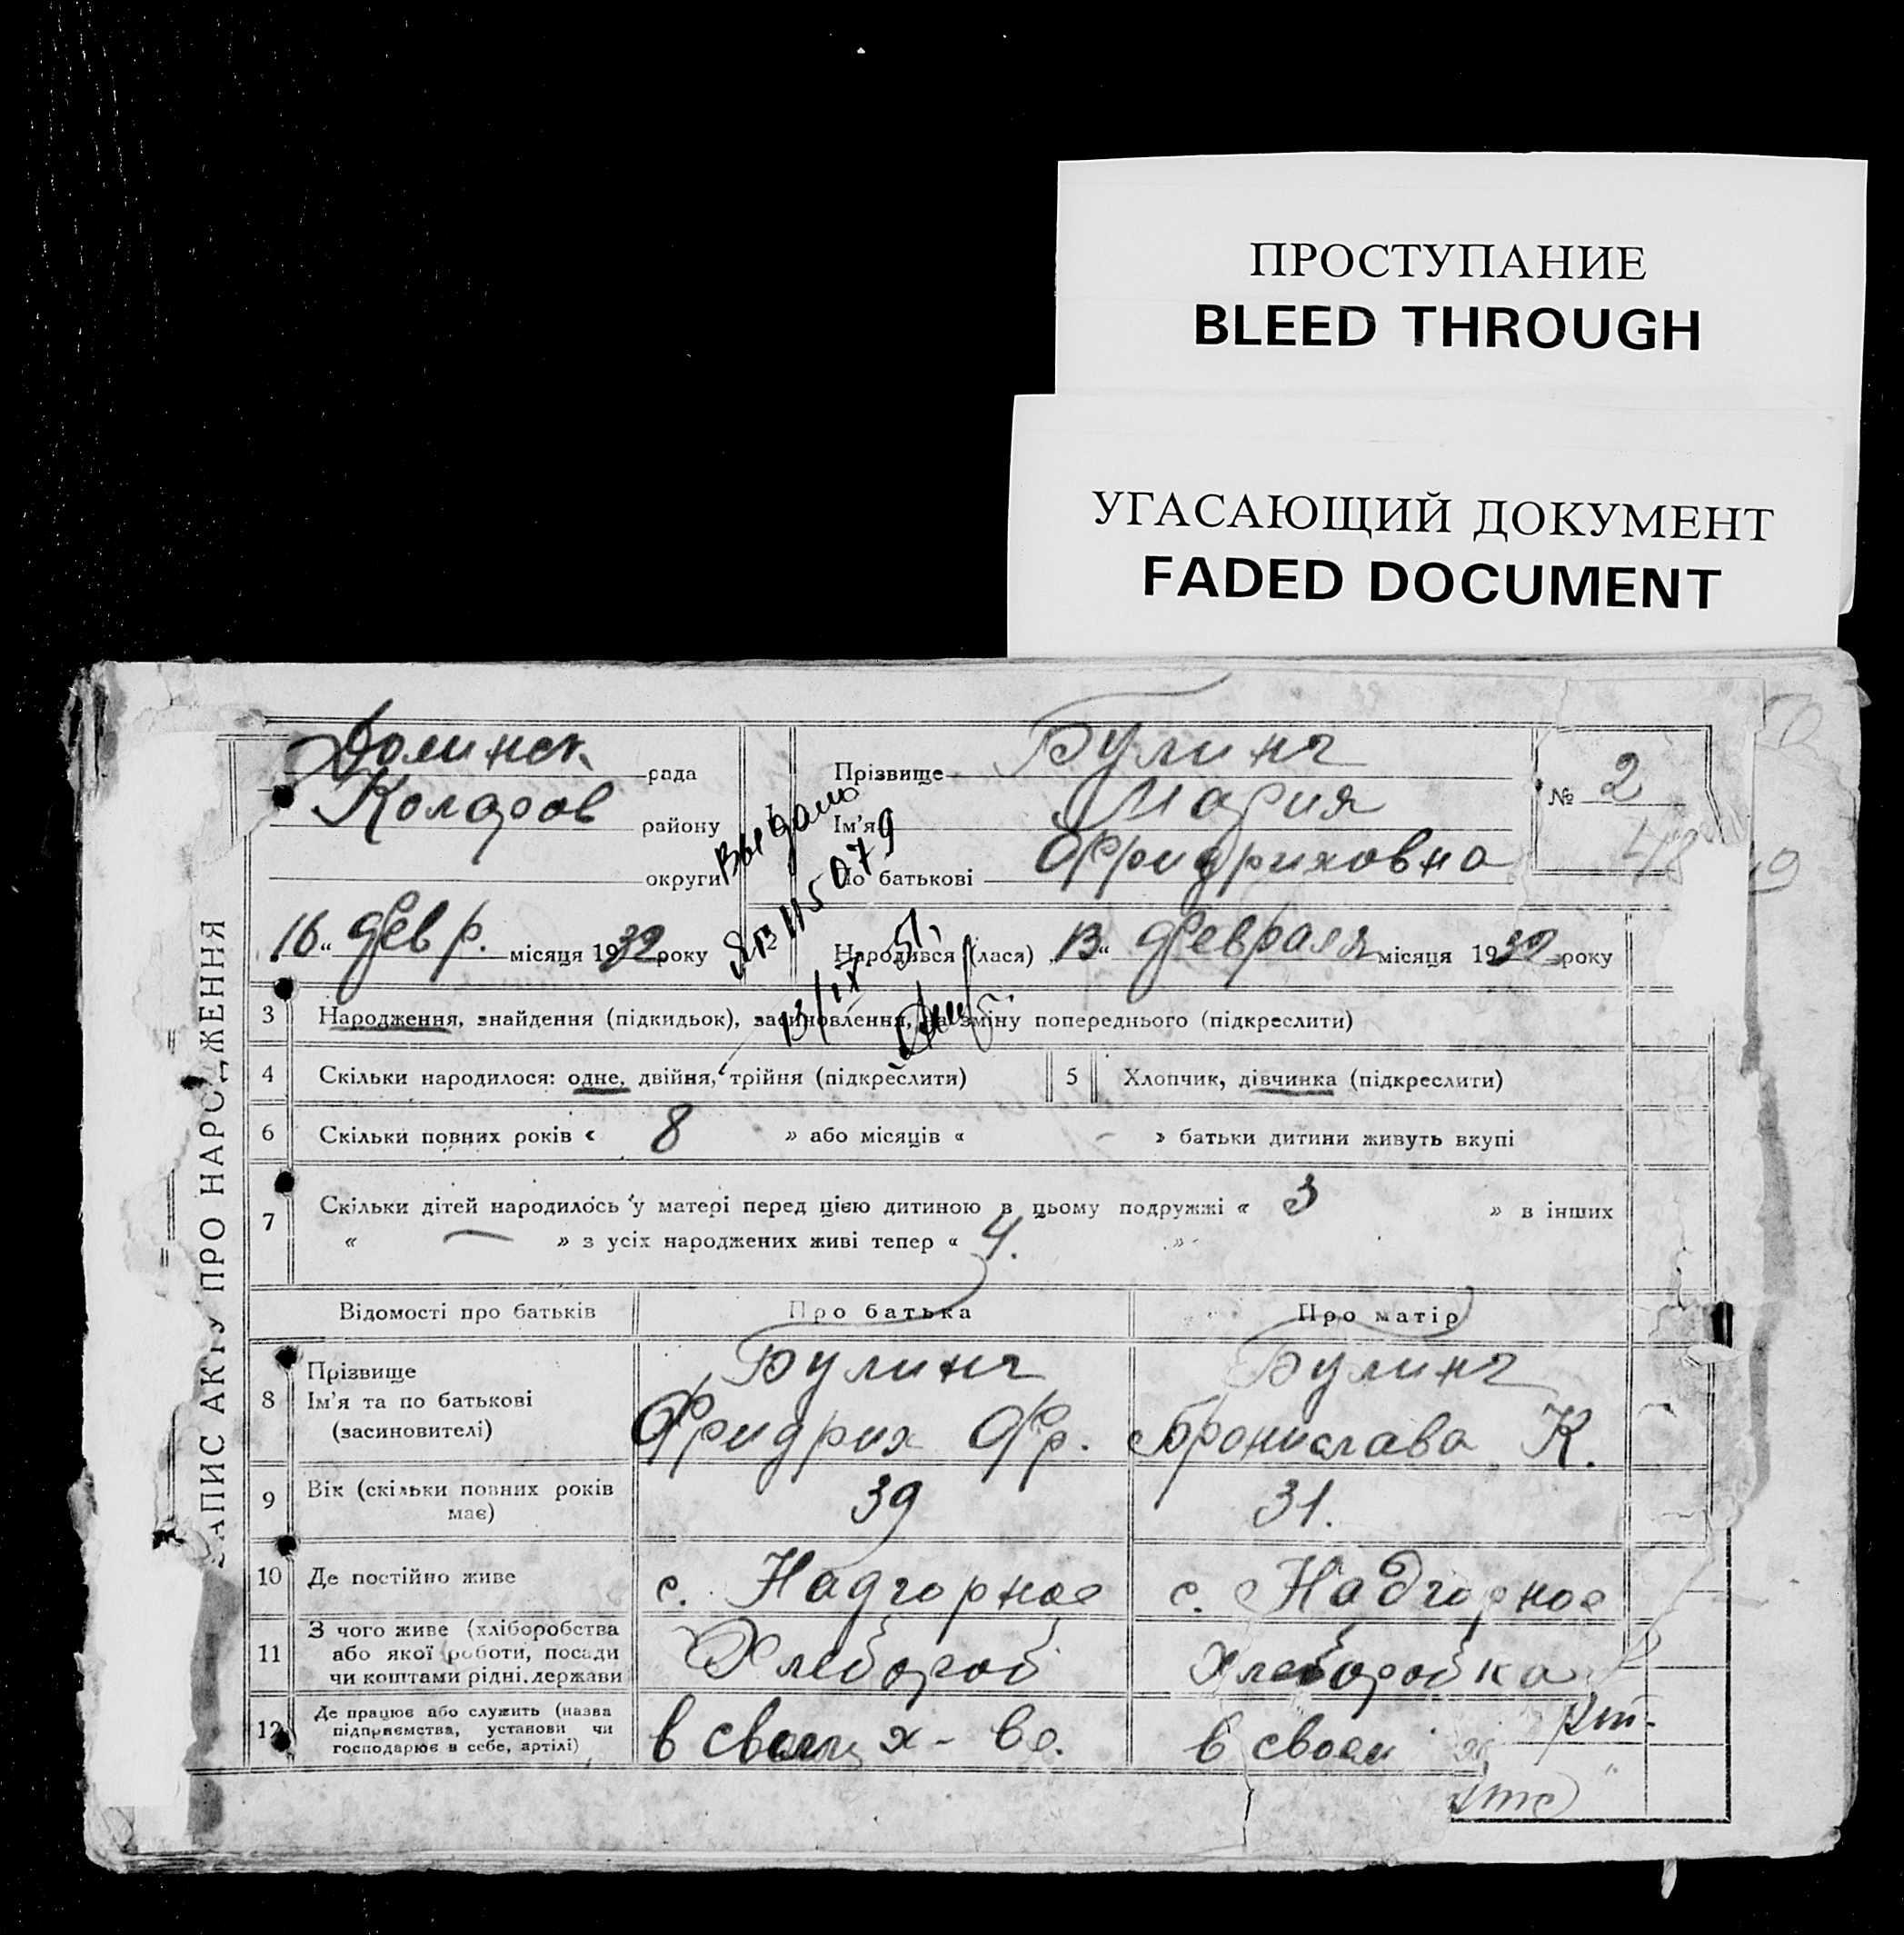 ПРОСТУПАНИЕ
BLEED THROUGH
УГАСАЮЩИЙ ДОКУМЕНТ
FADED DOCUMENT
ЗАПИС АКТУ ПРО НАРОДЖЕННЯ
Долинск. рада
Коларов району
округи
Прізвище Булинг
Ім'я Мария
По батькові Фридриховна
№ 2
Выдано
ЯВ 115079
13/IX 51
16 “ февр. місяця 1932 року
Народився (лася) „ 13 “ Февраля місяця 1932 року
3 Народження, знайдення (підкидьок), засиновлення, на зміну попереднього (підкреслити)
4 Скільки народилося: одне, двійня, трійня (підкреслити) 5 Хлопчик, дівчинка (підкреслити)
6 Скільки повних років « 8 » або місяців « - » батьки дитини живуть вкупі
7 Скільки дітей народилось у матері перед цією дитиною в цьому подружжі « 3 » в інших
« — » з усіх народжених живі тепер « 4. »
Відомості про батьків Про батька Про матір
8 Прізвище Булинг Булинг
Ім'я та по батькові Фридрих Фр. Бронислава К.
(засиновителі)
9 Вік (скільки повних років має) 39 31.
10 Де постійно живе с. Надгорное с. Надгорное
11 З чого живе (хліборобства або якої роботи, посади чи коштами рідні, держави Хлебороб Хлеборобка
12 Де працює або служить (назва підприємства, установи чи господарює в себе, артілі) в своем х-ве. в своем